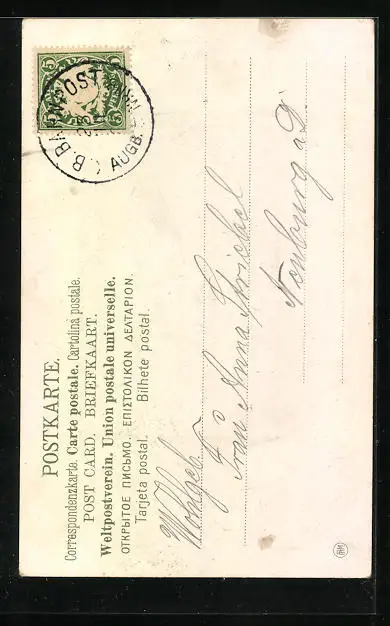 POSTKARTE.
Correspondenzkarte. Carte postale. Cartolina postale.
POST CARD. BRIEFKAART.
Weltpostverein. Union postale universelle.
ОТКРЫТОЕ ПИСЬМО. ΕΠΙΣΤΟΛΙΚΟΝ ΔΕΛΤΑΡΙΟΝ.
Tarjeta postal. Bilhete postal.
5 5
K. B. BAHNPOST
AUGB.
Wohlgeb.
Frau Anna
Neuburg a/D.